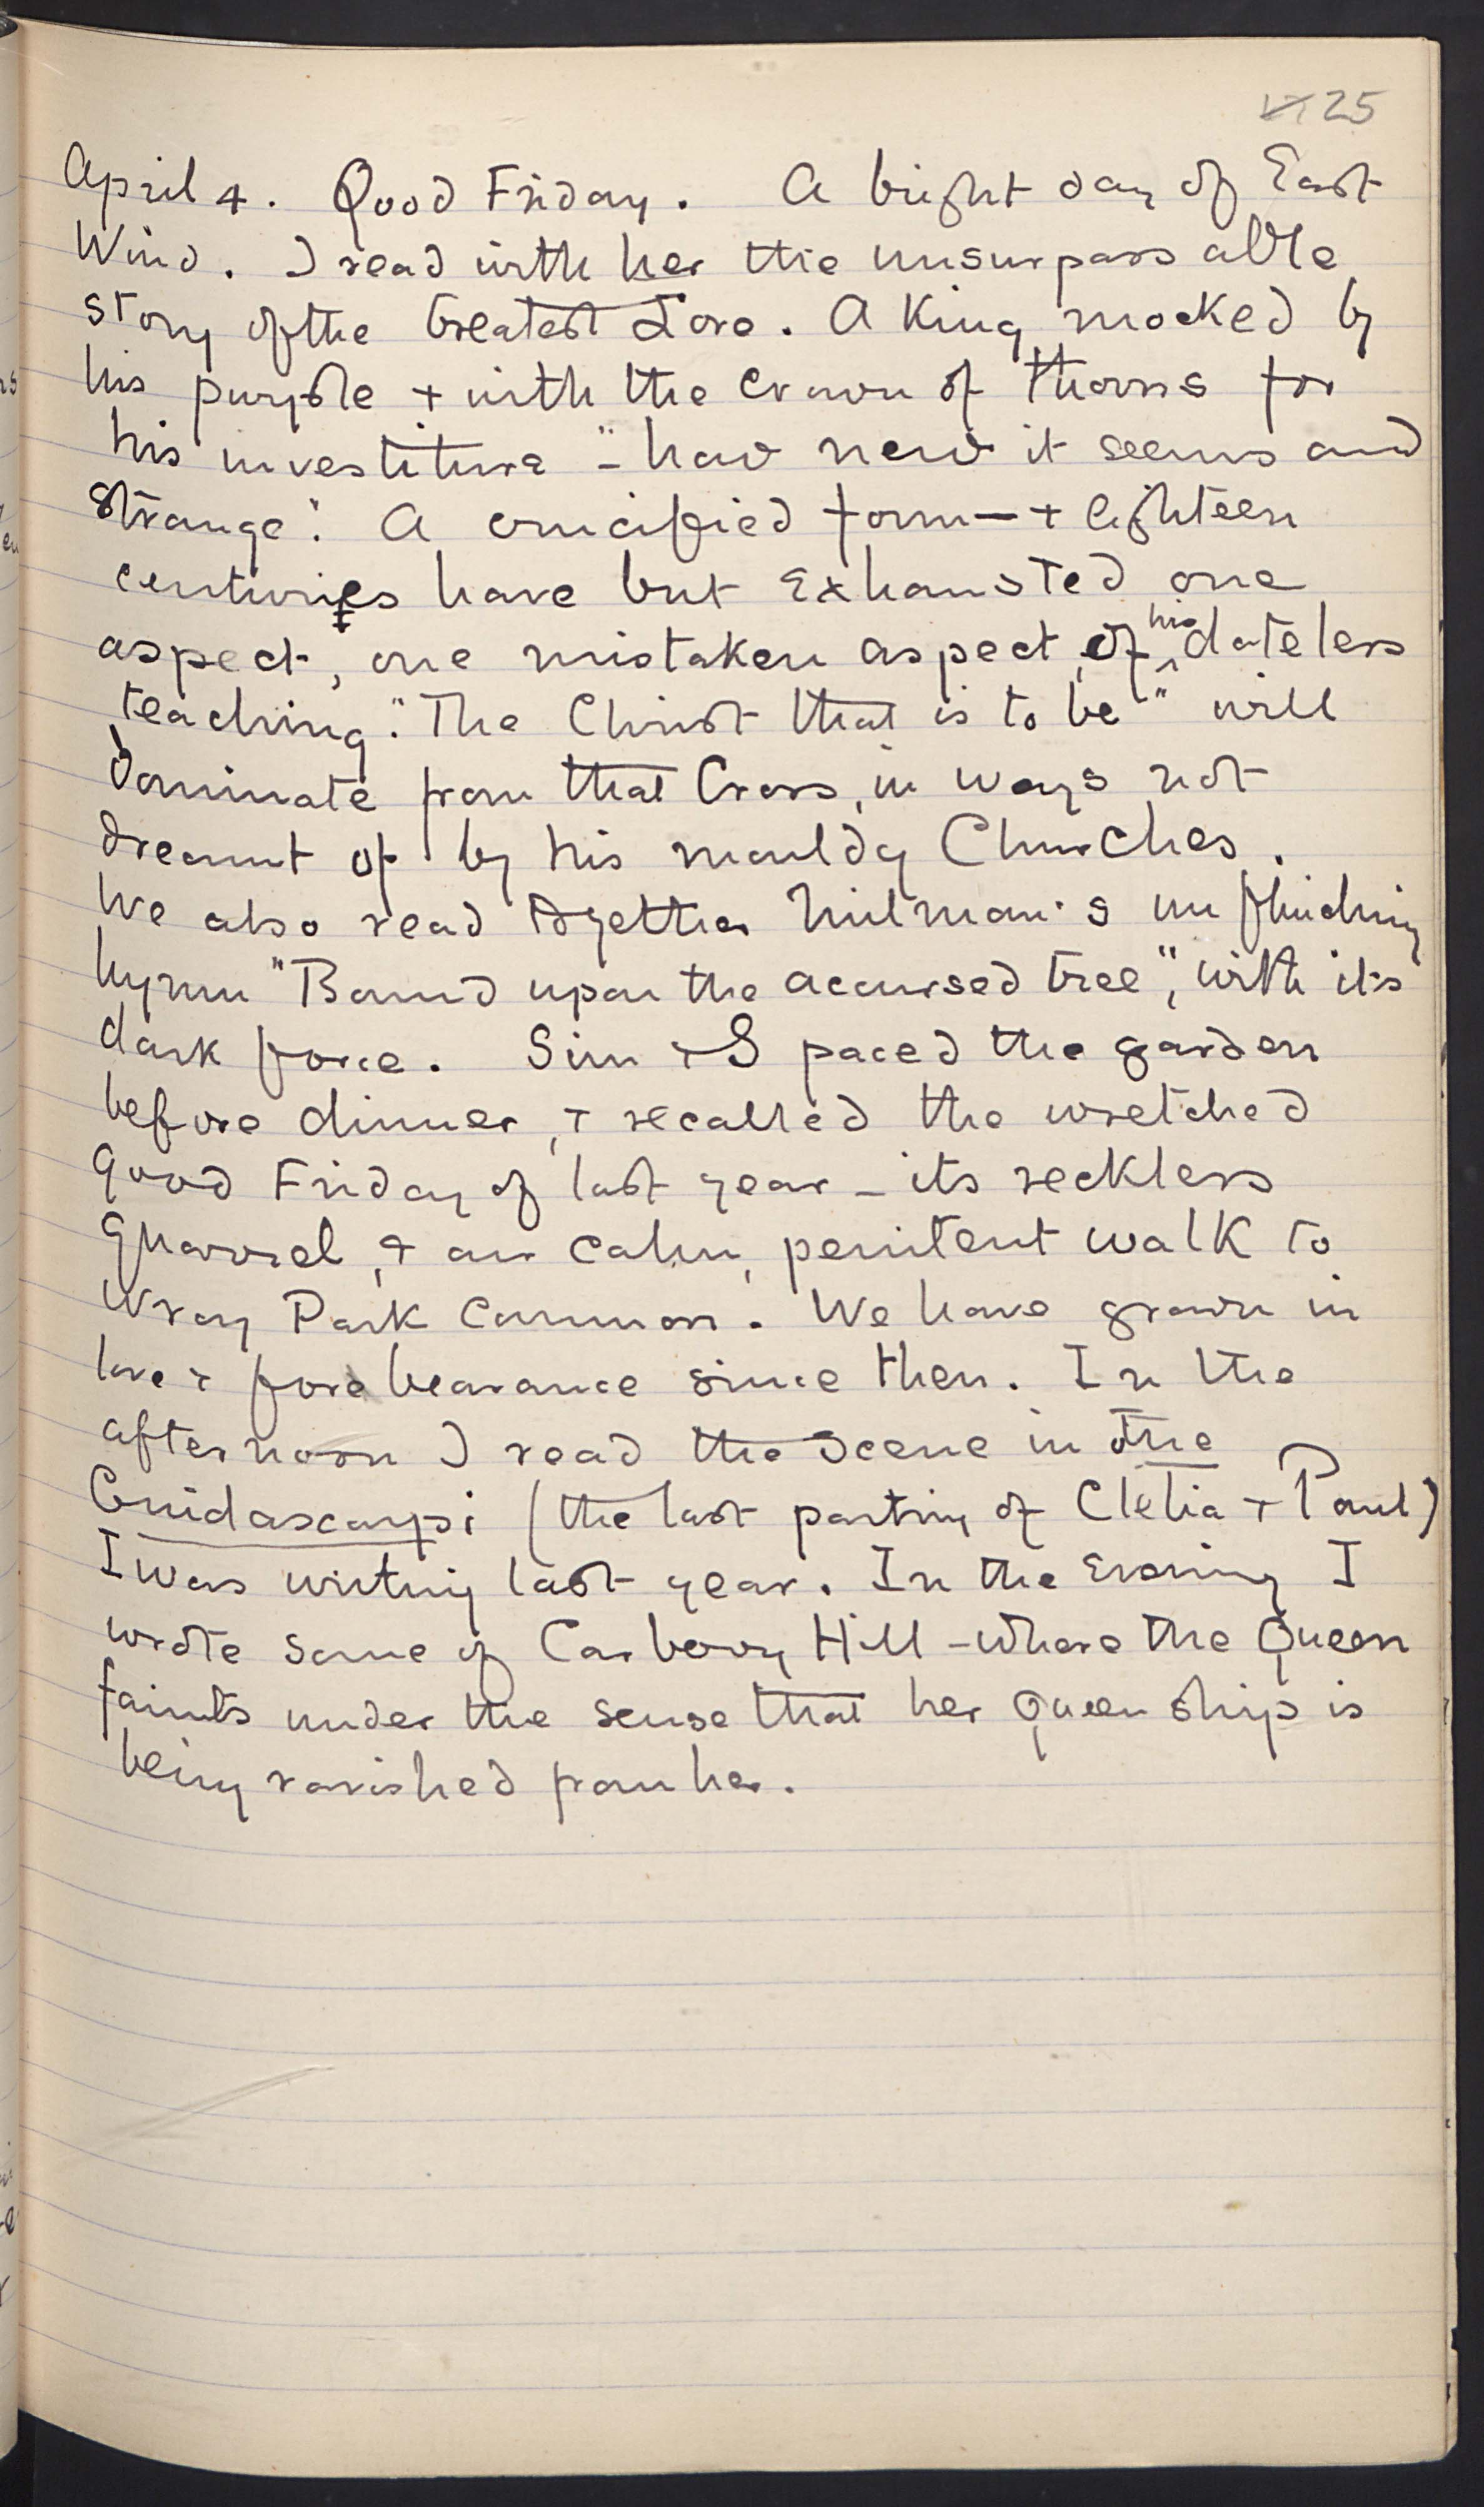 25
April 4. Good Friday. A bright day of East
Wind. I read with her the unsurpassable
story of the Greatest Love. A King mocked by
his purple + with the crown of thorns for
his investiture " - how new it seems and
strange". A crucified form — + eighteen
centuries have but exhausted one
aspect, one mistaken aspect, of his dateless
teaching. "The Christ that is to be" will
dominate from that Cross, in ways not
dreamt of by his mouldy Churches.
We also read together Milman's unflinching
hymn "Bound upon the accursed tree", with its
dark force. Sim + I paced the garden
before dinner, + recalled the wretched
Good Friday of last year - its reckless
quarrel, + our calm, penitent walk to
Wray Park Common. We have grown in
love + forebearance since then. In the
afternoon I read the scene in The
Guidascarpi (the last parting of Clelia + Paul)
I was writing last year. In the Evening I
wrote some of Carberry Hill - where the Queen
faints under the sense that her Queenship is
being ravished from her.